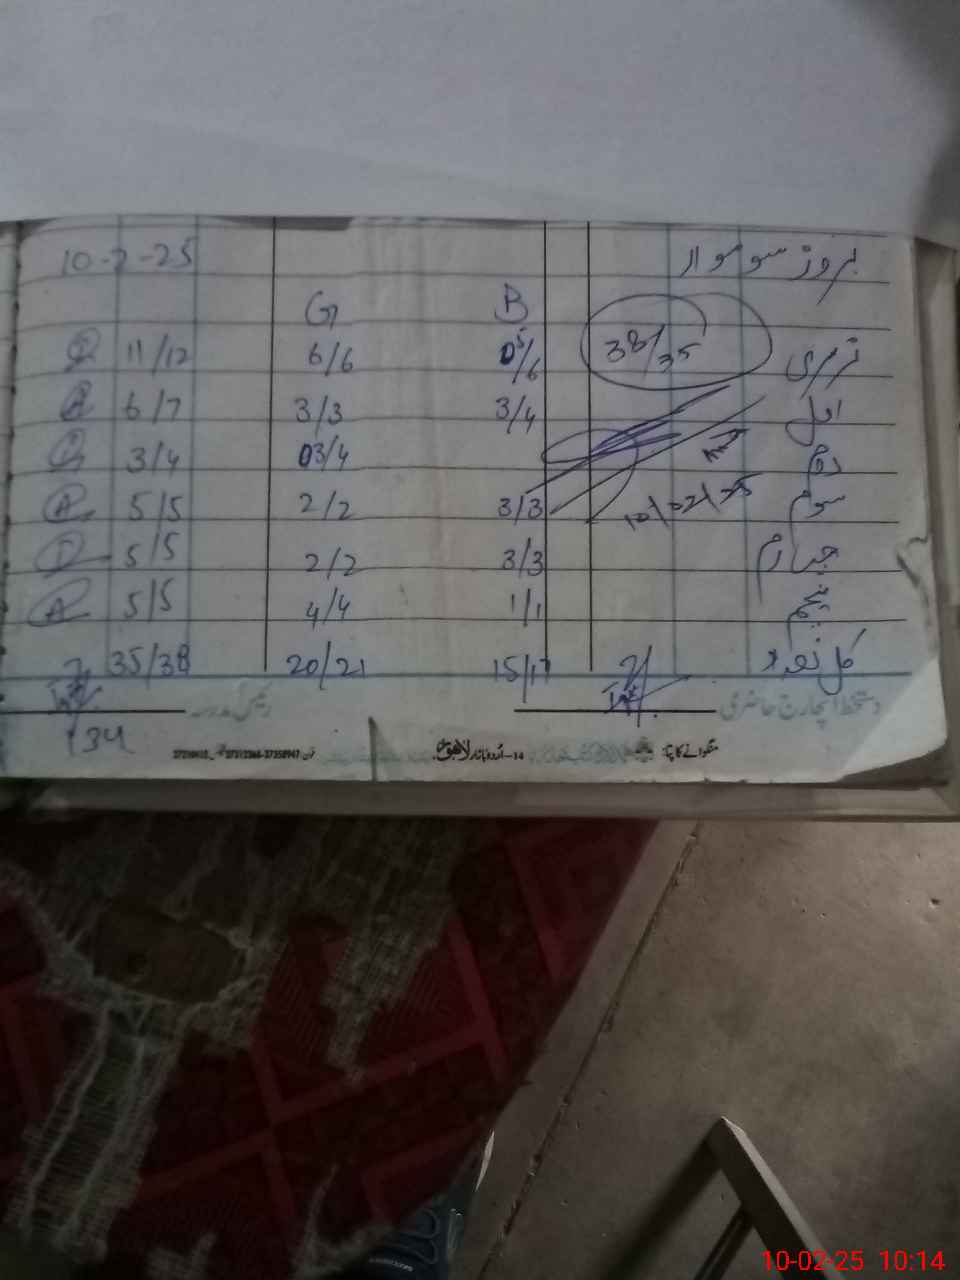 بروز سوموار 10-2-25
B G
نرسری 38/35 05/6 6/6 11/12
اول 3/4 3/3 6/7
دوم 03/4 3/4
سوم 10/02/25 3/3 2/2 5/5 A
چہارم 3/3 2/2 5/5
پنجم 1/1 4/4 5/5 A
کل تعداد 15/17 20/21 35/38
دستخط انچارج حاضری رئیس مدرسہ
منگوانے کا پتا: 14-اُردو بازار لاہور فون
134
10-02-25 10:14